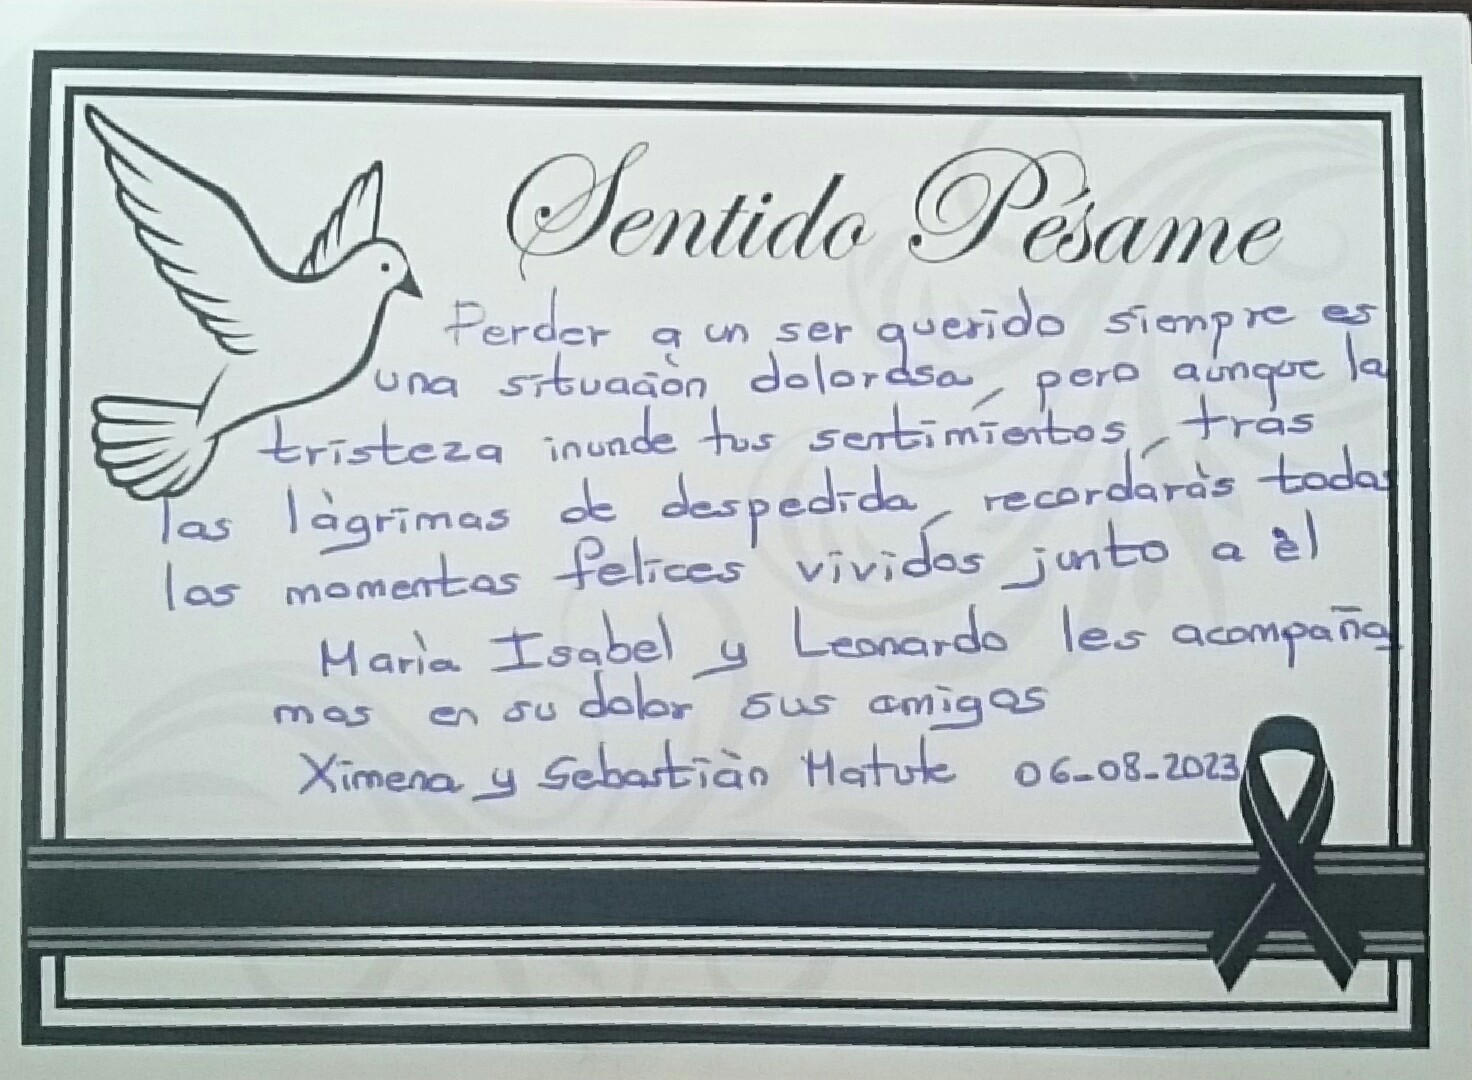 Sentido Pésame
Perder a un ser querido siempre es
una situaciòn dolorosa, pero aunque la
tristeza inunde tus sentimientos, tras
las làgrimas de despedida, recordaràs todos
los momentos felices vividos junto a èl
Marìa Isabel y Leonardo les acompaña
mos en su dolor sus amigos
Ximena y Sebastiàn Matute 06-08-2023